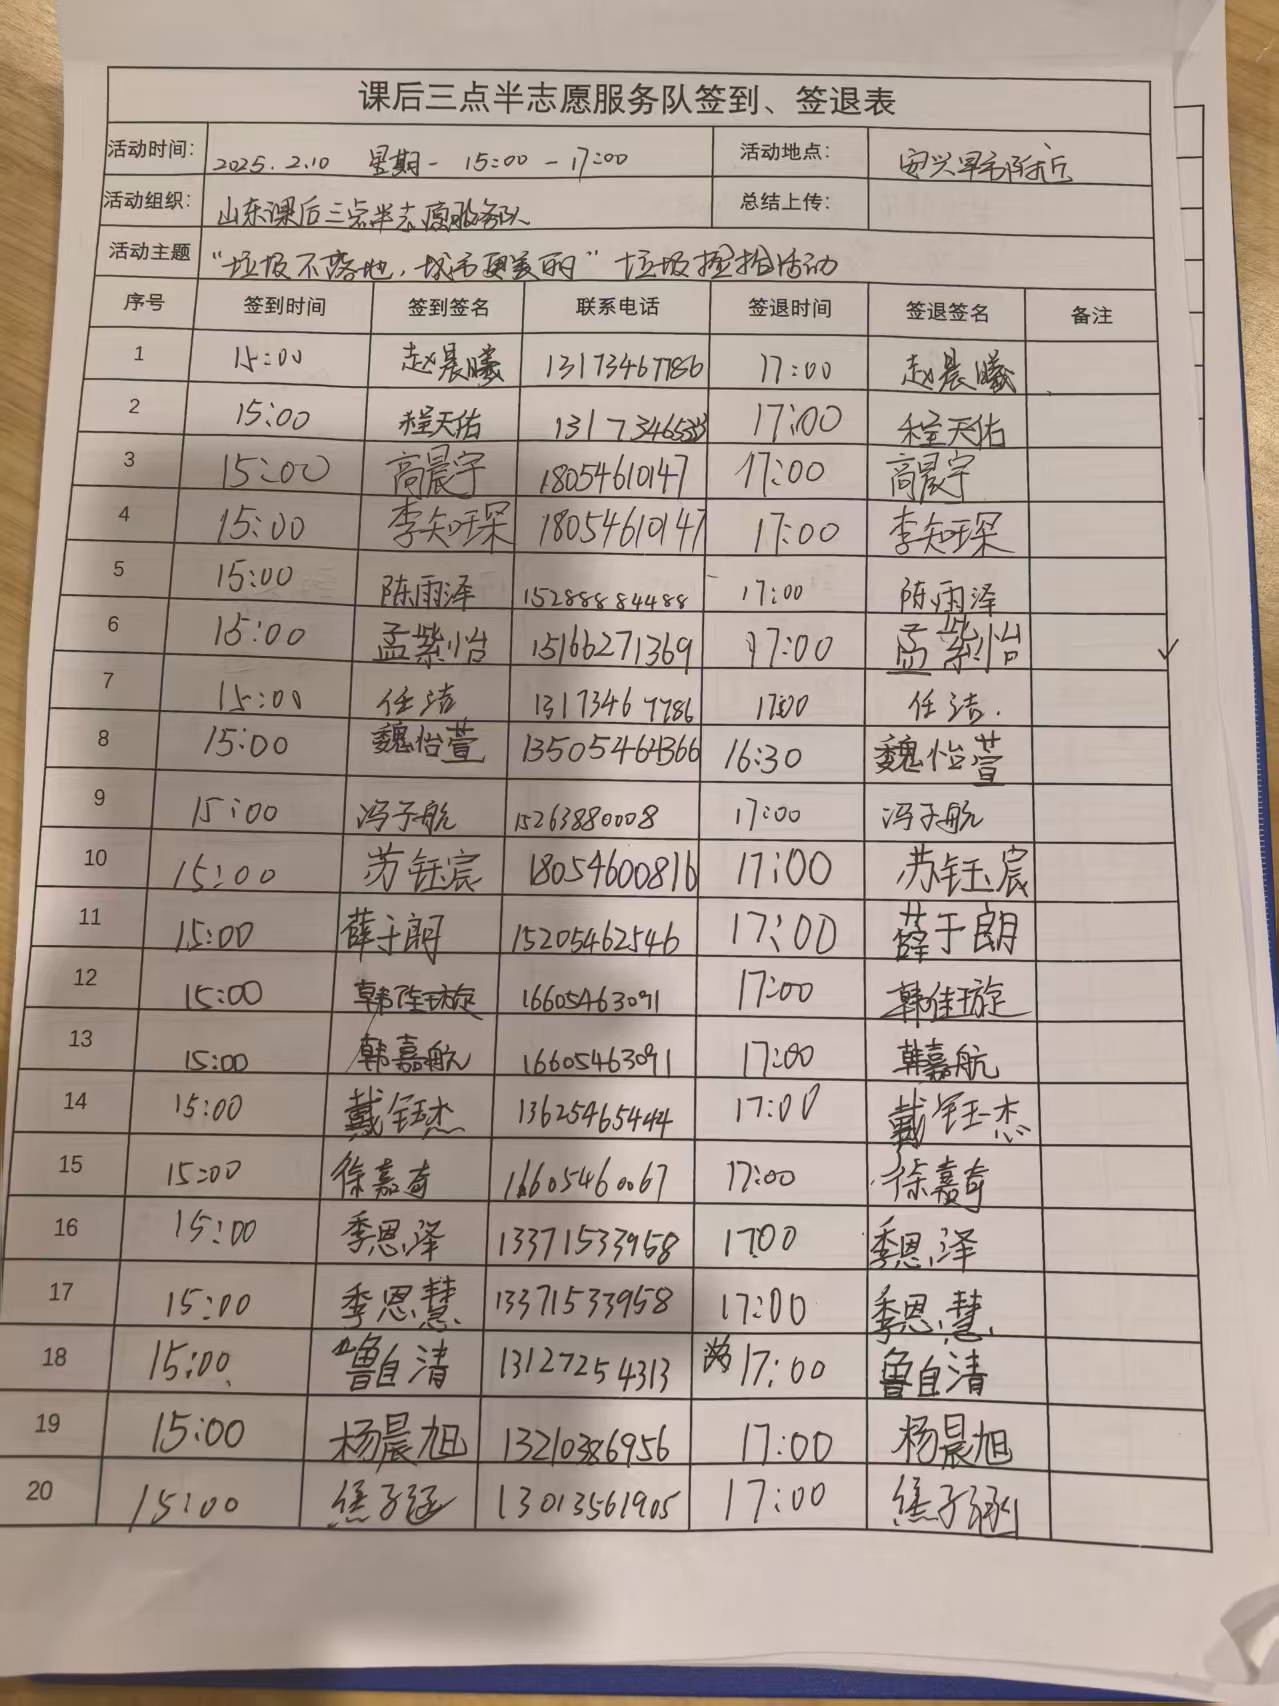 课后三点半志愿服务队签到、签退表
活动时间: 2025.2.10 星期一 15:00-17:00 活动地点:
活动组织: 山东课后三点半志愿服务队 总结上传:
活动主题 "垃圾不落地,城市更美丽"垃圾捡拾活动
序号 签到时间 签到签名 联系电话 签退时间 签退签名 备注
1 15:00 赵晨曦 13173467786 17:00 赵晨曦
2 15:00 程天佑 17:00 程天佑
3 15:00 高晨宇 18054610147 17:00 高晨宇
4 15:00 李知琛 18054610147 17:00 李知琛
5 15:00 陈雨泽 15288884488 17:00 陈雨泽
6 15:00 孟紫怡 15166271369 17:00 孟紫怡
7 15:00 任洁 13173467786 17:00 任洁.
8 15:00 魏怡萱 13505464366 16:30 魏怡萱
9 15:00 冯子航 15263880008 17:00 冯子航
10 15:00 苏钰宸 18054600816 17:00 苏钰宸
11 15:00 薛于朗 15205462546 17:00 薛于朗
12 15:00 韩佳璇 16605463091 17:00 韩佳璇
13 15:00 韩嘉航 16605463091 17:00 韩嘉航
14 15:00 戴钰杰 13625465444 17:00 戴钰杰
15 15:00 徐嘉奇 16605460067 17:00 徐嘉奇
16 15:00 季恩泽 13371533958 17:00 季恩泽
17 15:00 季恩慧 13371533958 17:00 季恩慧
18 15:00 鲁自清 13127254313 17:00 鲁自清
19 15:00 杨晨旭 13210386956 17:00 杨晨旭
20 15:00 焦子涵 13013561905 17:00 焦子涵